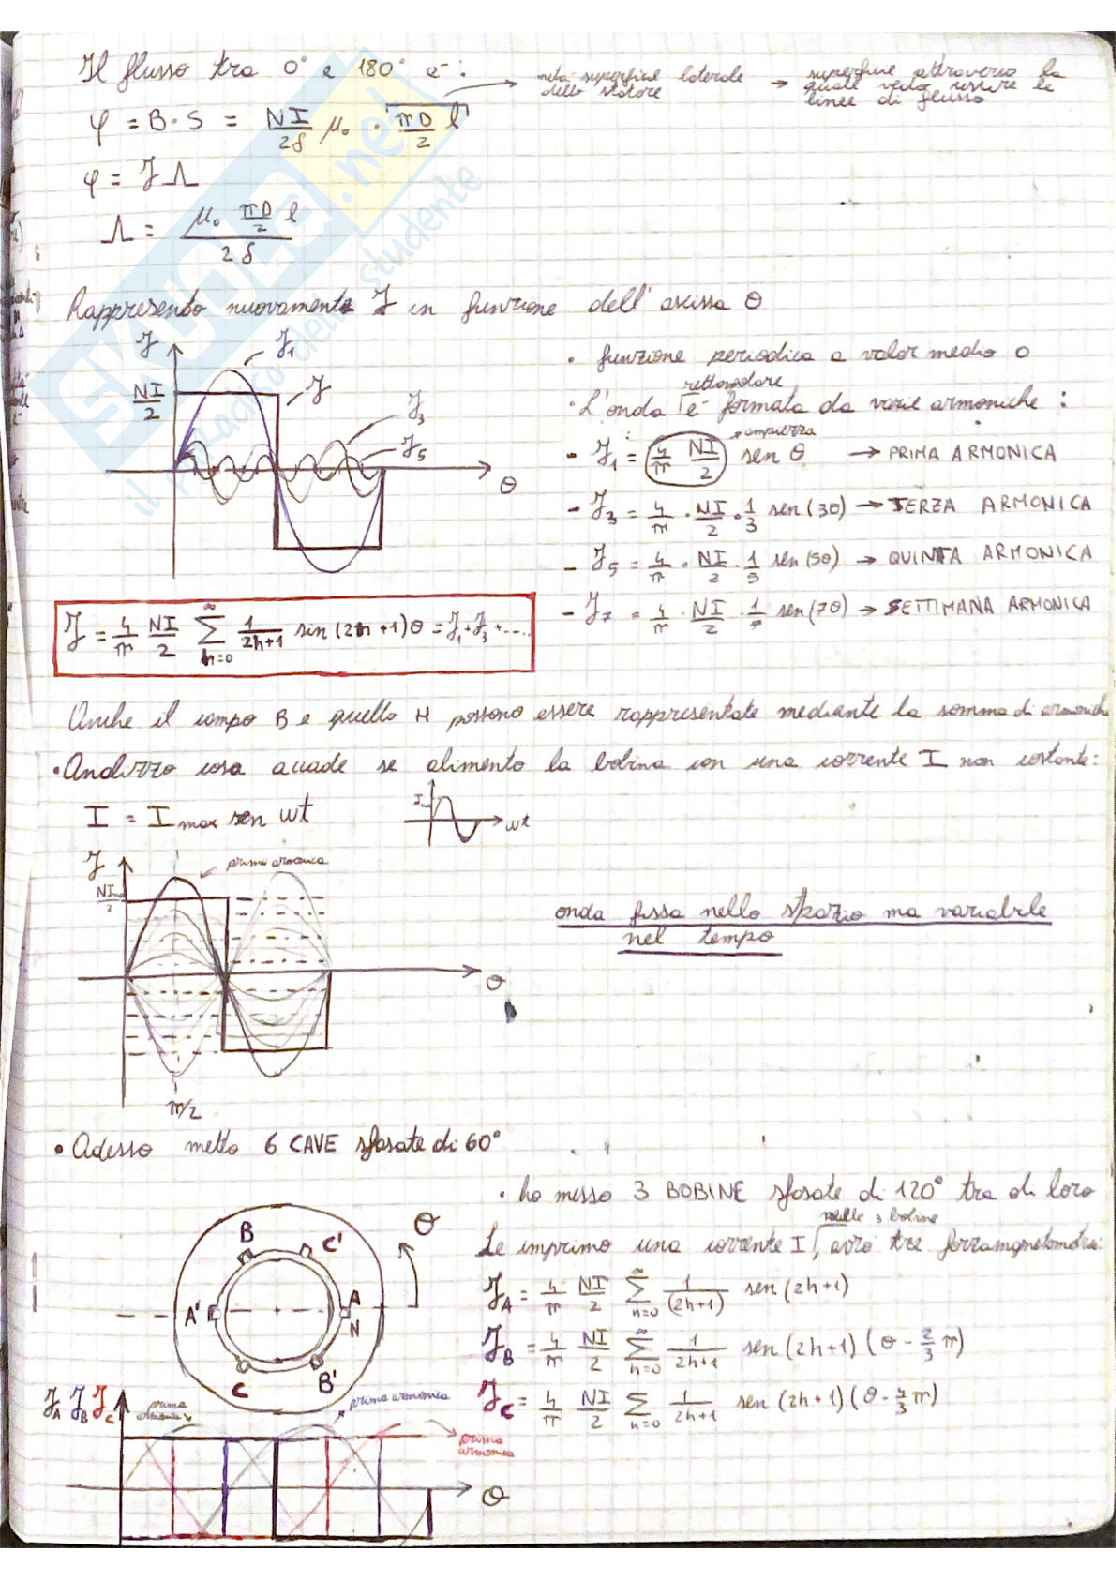 Il flusso tra 0° e 180° è:
→ metà superficie laterale dello statore → superficie attraverso la quale vado essere le linee di flusso
φ = B·S = NI/2δ μ₀ · πD/2 l
φ = ℱ Λ
Λ = μ₀ πD/2 l / 2δ
Rappresento nuovamente ℱ in funzione dell'ascissa θ
ℱ ℱ₁
NI/2 ℱ
ℱ₃
ℱ₅
θ
• funzione periodica a valor medio 0
• L'onda rettangolare è formata da varie armoniche:
- ℱ₁ = 4/π NI/2 sen θ → PRIMA ARMONICA
ampiezza
- ℱ₃ = 4/π · NI/2 · 1/3 sen(3θ) → TERZA ARMONICA
- ℱ₅ = 4/π · NI/2 · 1/5 sen(5θ) → QUINTA ARMONICA
- ℱ₇ = 4/π · NI/2 · 1/ sen(7θ) → SETTIMANA ARMONICA
ℱ = 4/π NI/2 ∑ h=0 ∞ 1/2h+1 sin(2h+1)θ = ℱ₁+ℱ₃+....
Anche il campo B e quello H possono essere rappresentate mediante la somma di armoniche
• Analizzo cosa accade se alimento la bobina con una corrente I non costante:
I = I max sen ωt
I ωt
ℱ prima armonica
NI/2
θ
π/2
onda fissa nello spazio ma variabile
nel tempo
• Adesso metto 6 CAVE sfasate di 60°
• ho messo 3 BOBINE sfasate di 120° tra di loro
nelle 3 bobine
Se imprimo una corrente I, avrò tre forzamagnetomotrici:
B C' θ
A' A
N
C B'
ℱA = 4/π NI/2 ∑ h=0 ∞ 1/(2h+1) sen(2h+1)
ℱB = 4/π NI/2 ∑ h=0 ∞ 1/2h+1 sen(2h+1)(θ - 2/3 π)
ℱC = 4/π NI/2 ∑ h=0 1/2h+1 sen(2h+1)(θ - 4/3 π)
ℱA ℱB ℱC
prima armonica
prima armonica
prima armonica
θ
SKUOLA.net
il paradiso dello studente